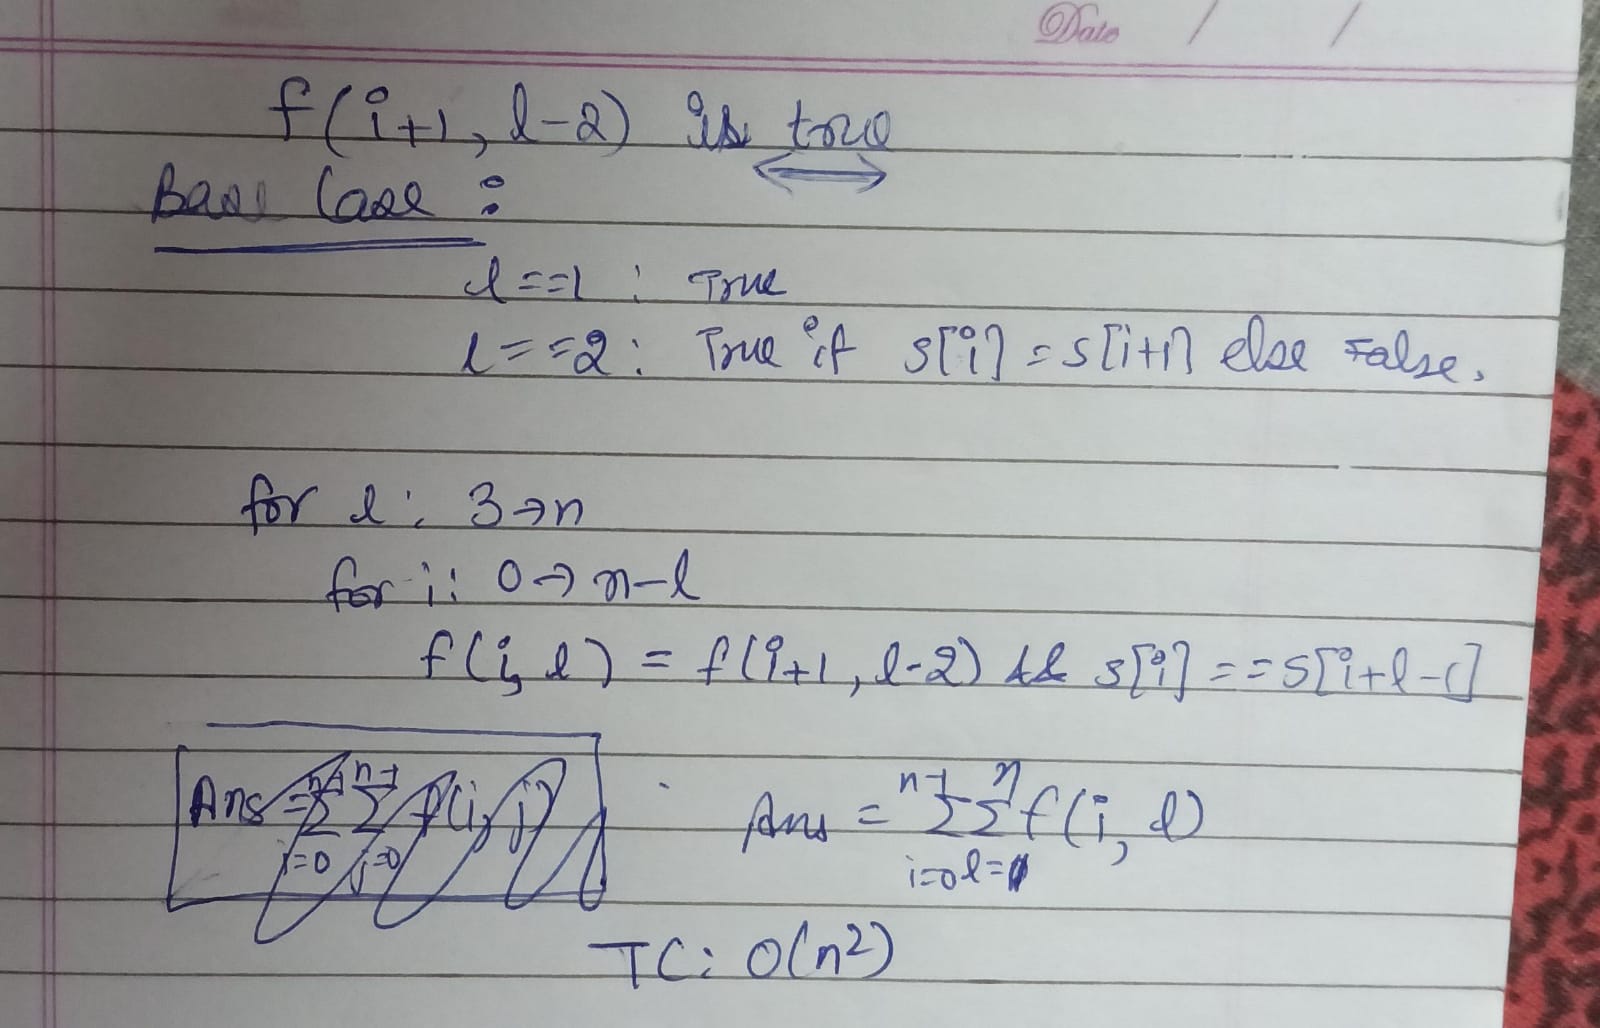 Date / /
f(i+1, l-2) is true
Base Case :
l==1 : True
l==2 : True if s[i] = s[i+1] else False.
for l : 3→n
for i : 0→ n-l
f(i, l) = f(i+1, l-2) && s[i] == s[i+l-1]
Ans = n-1Σi=0 n-1Σj=0 f(i, j)
Ans = n-1Σi=0 nΣl=1 f(i, l)
TC: O(n²)